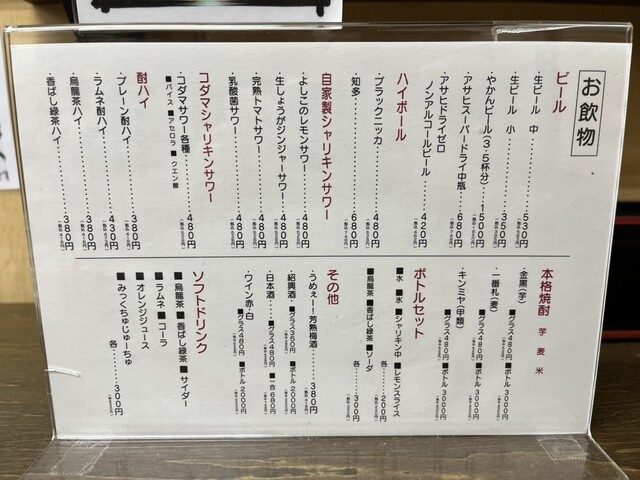 お飲物
ビール
・生ビール 中………530円
・生ビール 小………350円
・やかんビール(3.5杯分)…1500円
・アサヒスーパードライ中瓶……680円
・アサヒドライゼロ
ノンアルコールビール……420円
ハイボール
・ブラックニッカ………480円
・知多………680円
自家製シャリキンサワー
・よしこのレモンサワー……480円
・生しょうがジンジャーサワー…480円
・完熟トマトサワー………480円
・乳酸菌サワー………480円
コダマシャリキンサワー
・コダマサワー各種………480円
■バイス ■アセロラ ■クエン酸
酎ハイ
・プレーン酎ハイ………380円
・ラムネ酎ハイ………430円
・烏龍茶ハイ………380円
・香ばし緑茶ハイ………380円
本格焼酎 芋 麦 米
・金黒(芋)
■グラス480円 ■ボトル3000円
・一番札(麦)
■グラス480円 ■ボトル3000円
・キンミヤ(甲類)
■グラス480円 ■ボトル3000円
ボトルセット
■水 ■氷 ■シャリキン中 ■レモンスライス
各………200円
■烏龍茶 ■香ばし緑茶 ■ソーダ
各………300円
その他
・うめぇー!芳熟梅酒……380円
・紹興酒…■グラス350円 ■ボトル2000円
・日本酒…■グラス480円 ■一合680円
・ワイン赤・白
■グラス480円 ■ボトル2000円
ソフトドリンク
■烏龍茶 ■香ばし緑茶 ■サイダー
■ラムネ ■コーラ
■オレンジジュース
■みっくちゅじゅーちゅ
各………300円